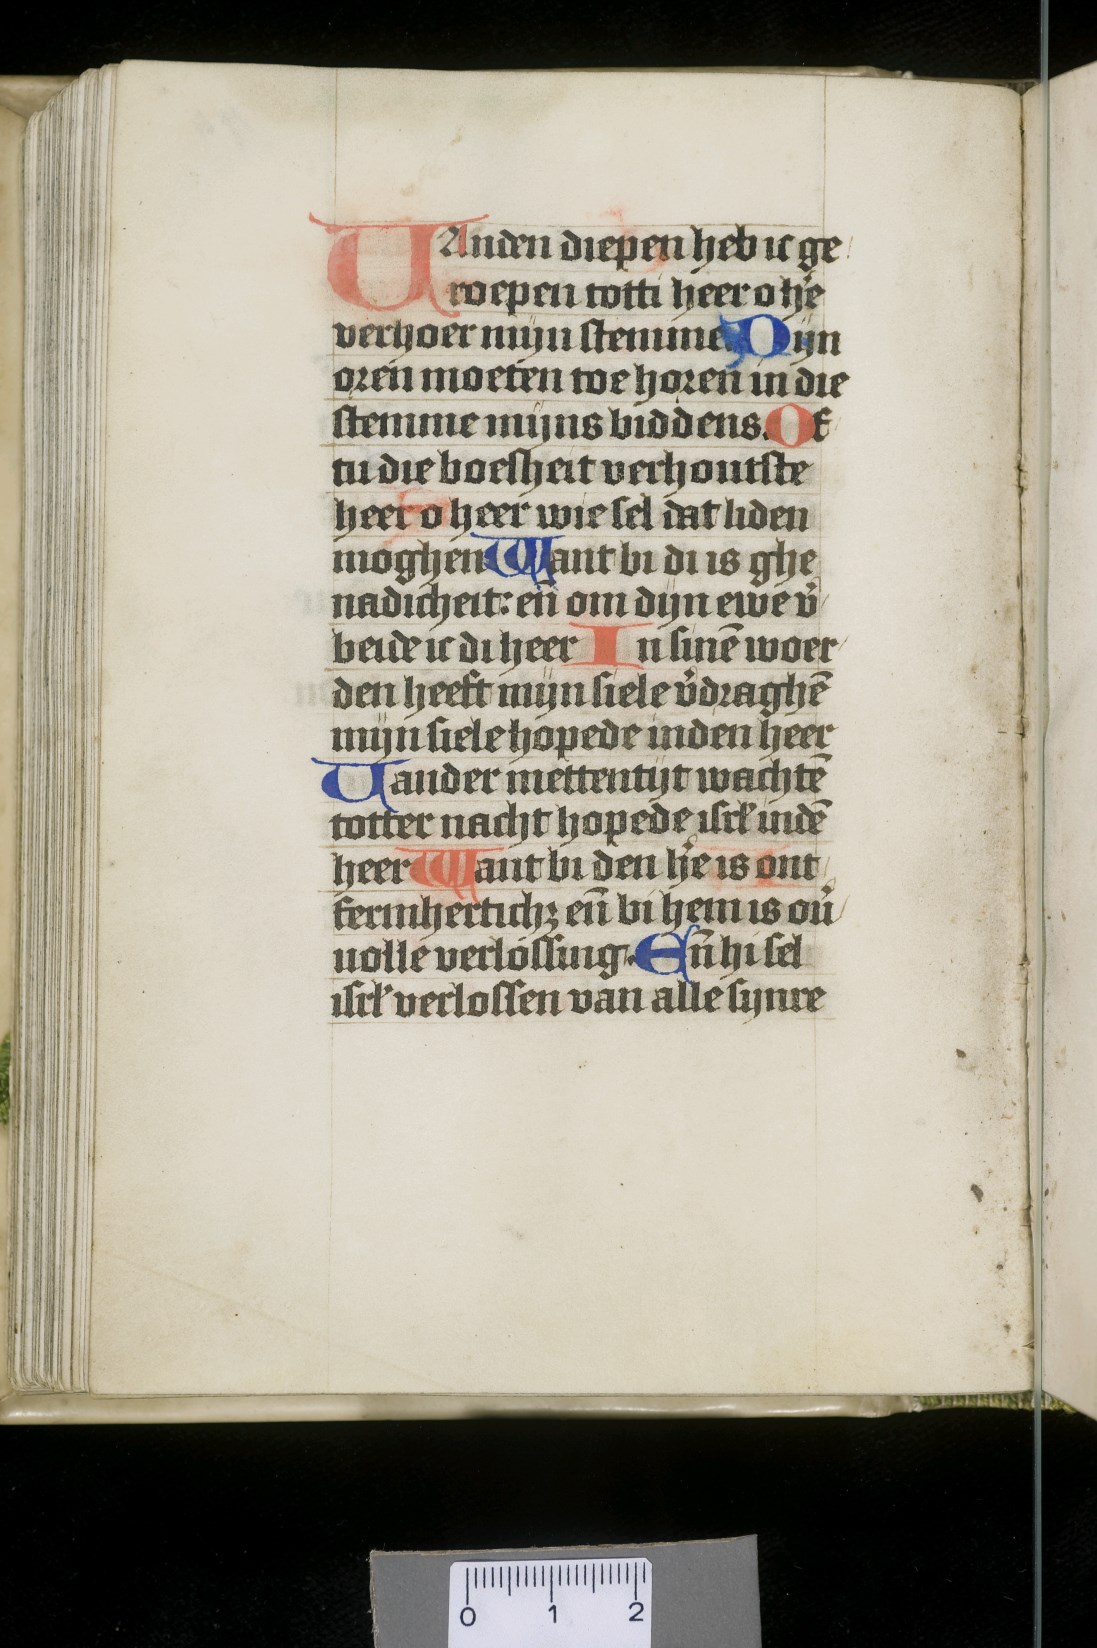 VAnden diepen heb ic ge
roepen totti heer o he᷒
verhoer mijn stemme. Dijn
oren moeten toe horen in die
stemme mijns biddens. Of
tu die boesheit verhoutste
heer o heer wie sel dat liden
moghen Want bi di is ghe
nadicheit: en̄ om dijn ewe v᷒
beide ic di heer In sinē woer
den heeft mijn siele v᷒draghē
mijn siele hopede inden heer
Vander mettentijt wachtē
totter nacht hopede isrł indē
heer Want bi den he᷒ is ont
fermhertichꝫ en̄ bi hem is ou᷒
volle verlossing. En̄ hi sel
isrł verlossen van alle sijnre
0 1 2